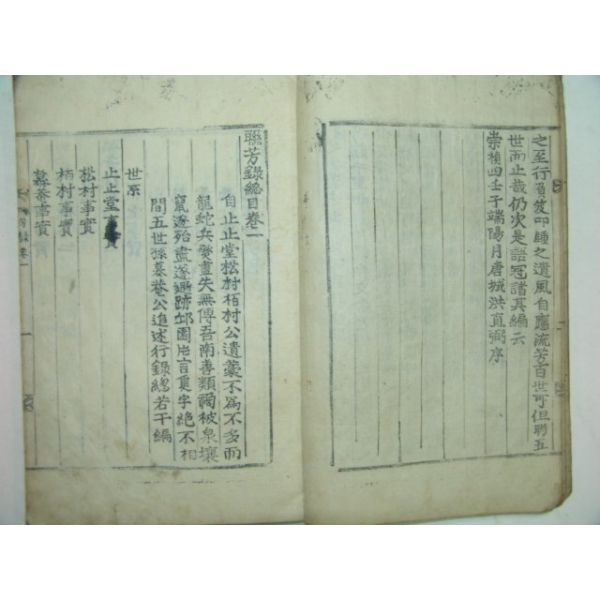 之至行負笈叩腄之遺風自應流芳百世可但聯五
世而止哉仍次是語冠諸其編云
崇禎四壬子端陽月唐城洪直弼序
聯芳錄總目卷一
自止止堂松村栢村公遺藁不爲不多而
龍蛇兵燹盡失無傳吾南善類禍被泉壤
竄逐殆盡遂遯跡邱園片言隻字絶不相
間五世孫慕菴公追述行錄緫若干編
世系
止止堂事實
松村事實
栢村事實
慕菴事實